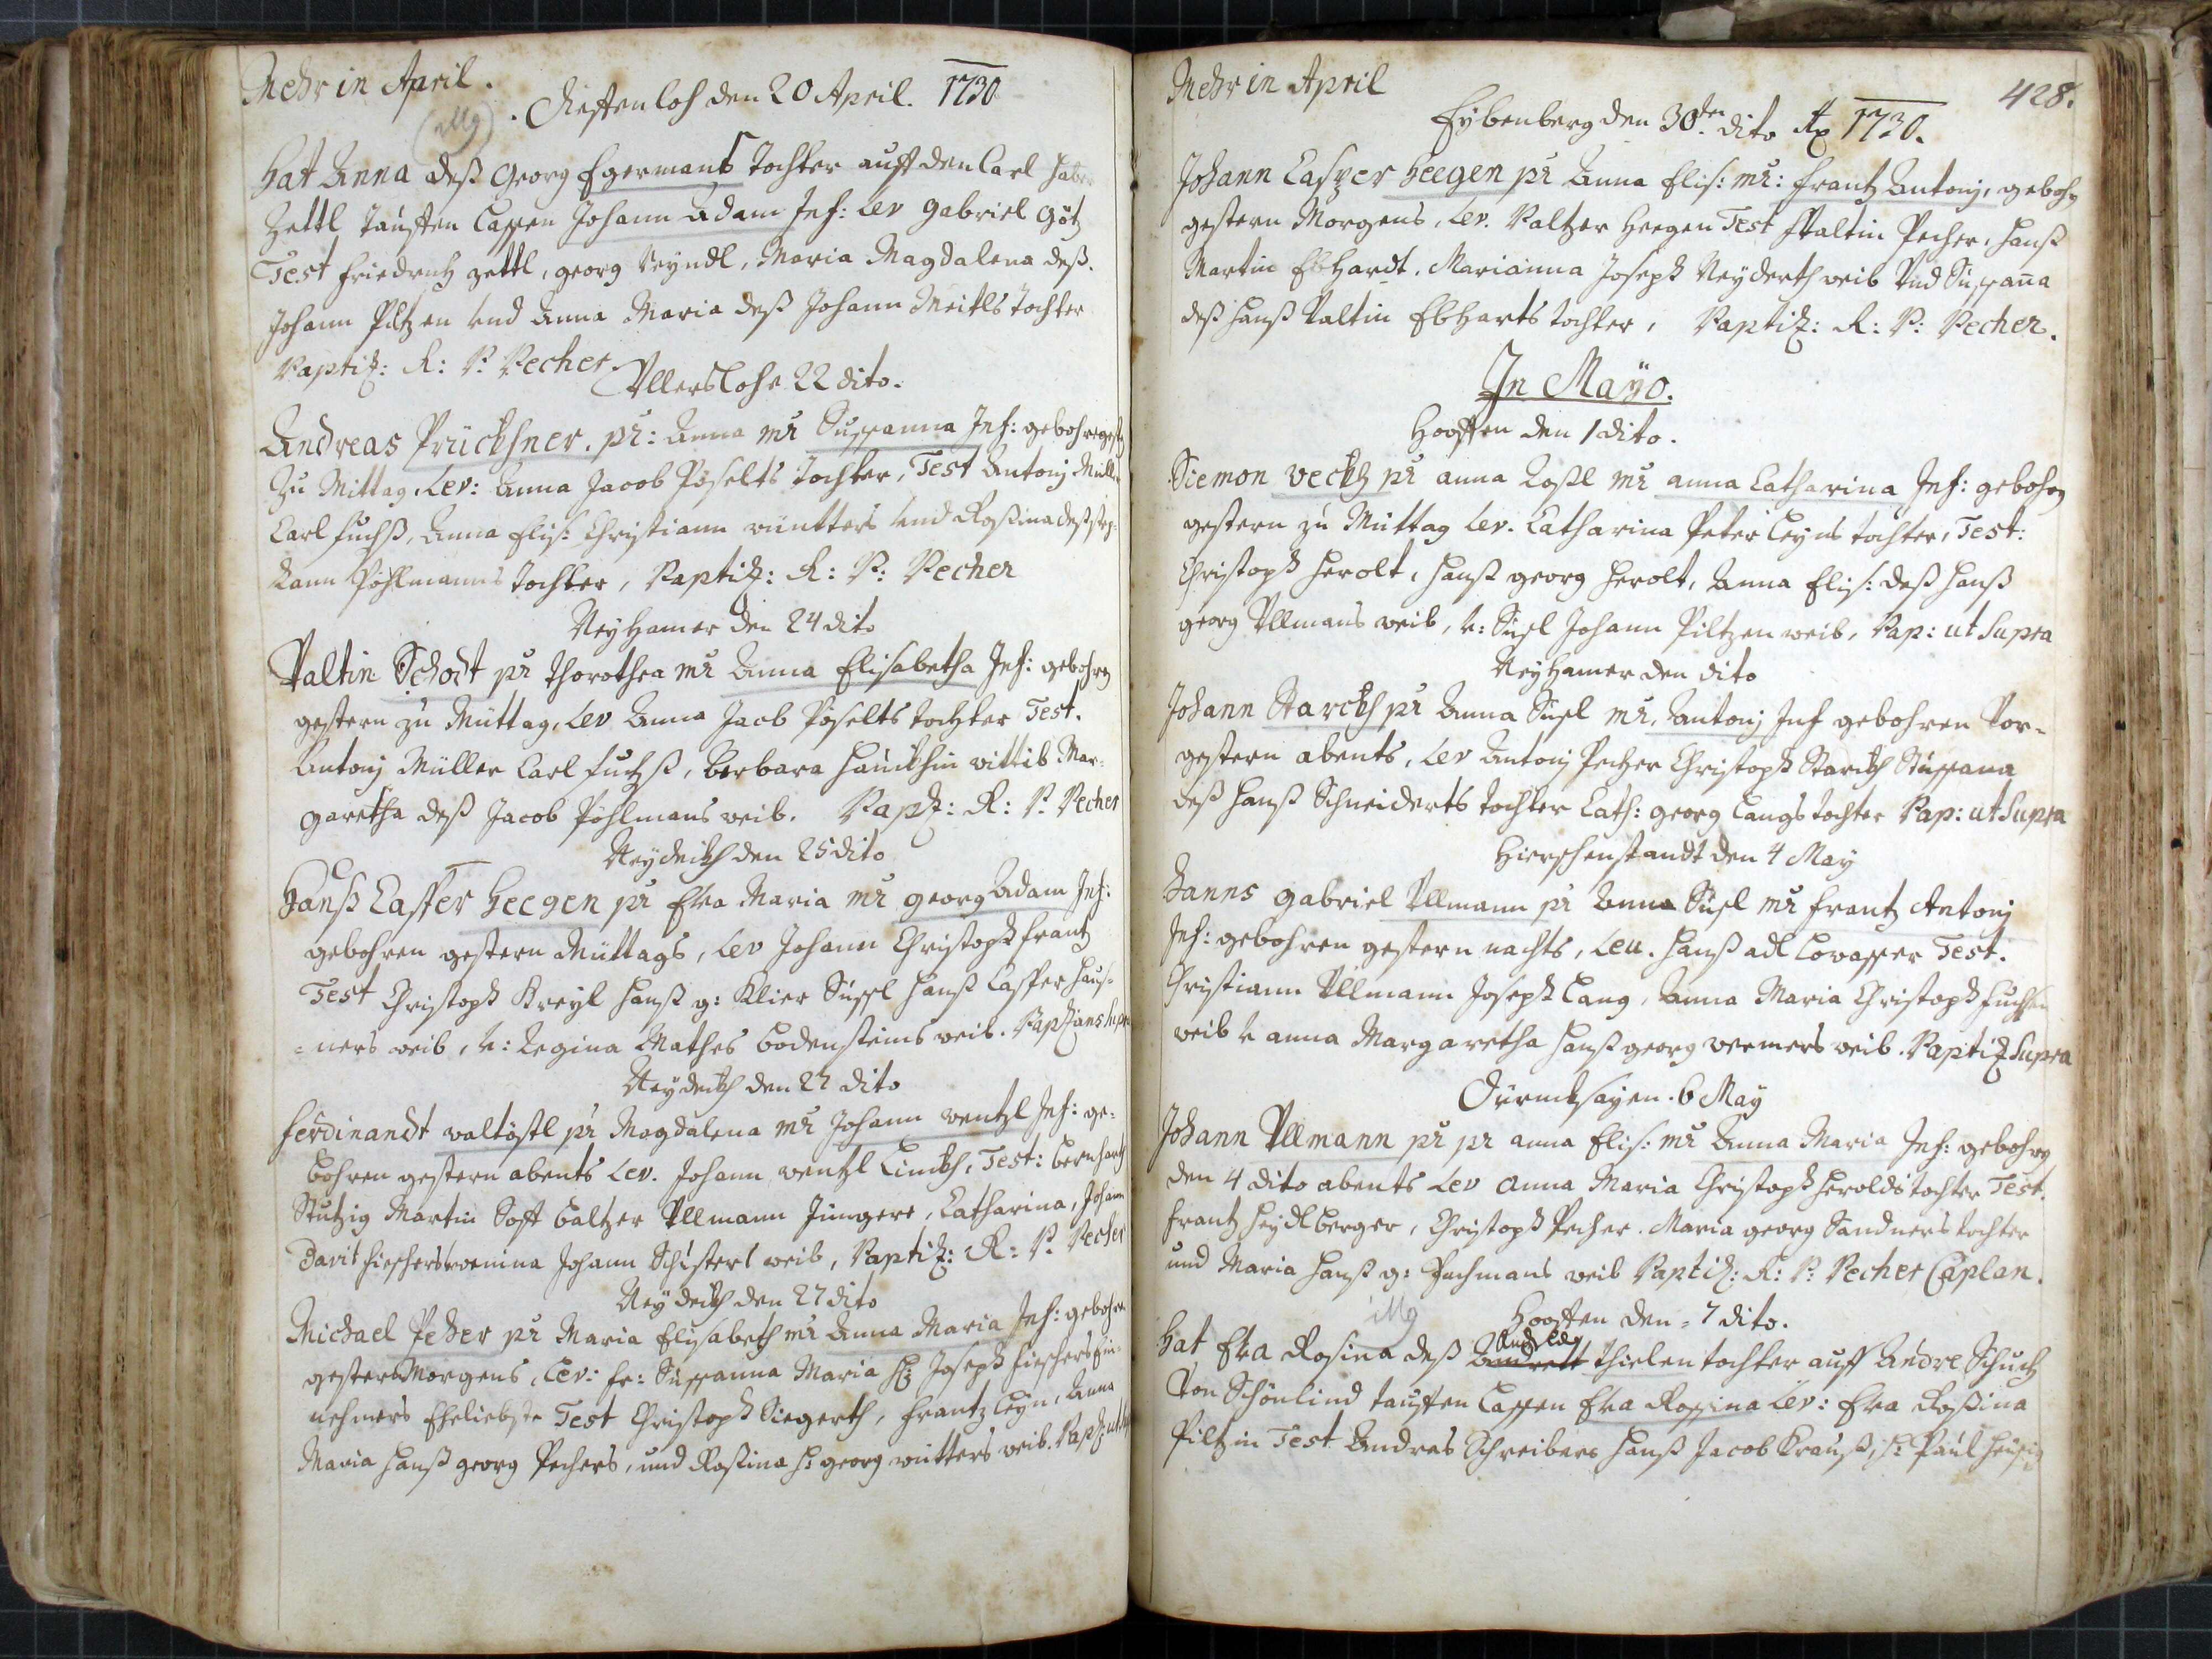 Mehr in April.
(illeg)
Chestenloh den 20 April. 1730
Hat Anna deß Georg Egermans Tochter auff den Carl
Zettl tauffen lassen Johann Adam Inf: Lev Gabriel Götz
Test Friedrich Zettl, Georg Veyndl, Maria Magdalena deß
Johann Piltzen und Anna Maria deß Johann Meitls Tochter
Baptiz: R: P: Pecher
Ullersloh 22 dito.
Andreas Prückhsner. pr: Anna mr Sussanna Inf: gebohr gest
zu Mittag, Lev: Anna Jacob Pöselts Tochter, Test Antonj Müller
Carl Fuchß, Anna Elis: Christiann wüntters und Rossina deß
Pöhlmanns Tochter, Baptiz: R: P: Pecher
Neyhamer den 24 dito
Valtin Schodt pr Thorothea mr Anna Elisabetha Inf: gebohrn
gestern zu Müttag, Lev Anna Jacob Pöselts tochter Test.
Antonj Müller Carl Fuchß, Berbara wittib Mar-
garetha deß Jacob Pöhlmans weib. Bapz: R: P: Pecher
Neydeikh den 25 dito
Hanß Casper Heegen pr Eva Maria mr Georg Adam Inf:
gebohren gestern Müttags, Lev Johann Christoph Frantz
Test Christoph Kreysl Hanß G: Klier Sussl Hanß Casper Haus-
=ners weib, v: Regina Mathes Bodensteins weib.
Neydeikh den 27 dito
Ferdinandt waltössl pr Magdalena mr Johann wentzl Inf: ge-
bohren gestern abents Lev. Johann wentzl Linckh, Test: Bernhart
Stutzig Martin Baltzer Ullmann Jüngere, Catharina, Johann
Davit Fischers Johann Schisterl weib, Baptiz: R: P: Pecher
Neydeikh den 27 dito
Michael Peher pr Maria Elisabeth mr Anna Maria Inf: gebohrn
gestern Morgens, Lev: fr: Sussanna Maria H: Joseph Fischers Ein-
nehmers Eheliebste Test Christoph Siegerth, Frantz Leyn, Anna
Maria Hanß Georg Pechers, und Rossina H: Georg wütters weib.
Mehr in April
428.
Eybenberg den 30ten dito Ao 1730.
Johann Casper Heegen pr Anna Elis: mr: Frantz Antonj, gebohrn
gestern Morgens, Lev. Baltzer Heegen Test Valtin Pecher, Hanß
Martin Ebhardt, Marianna Joseph Neyderth weib und Sussana
deß Hanß Valtin Ebharts tochter, Baptiz: R: P: Pecher.
In Mayo.
Hooffen den 1 dito.
Siemon veckh pr anna Rosl mr anna Catharina Inf: gebohrn
gestern zu Müttag Lev. Catharina Peter Leyns tochter, Test:
Christoph Herolt, Hanß Georg Herolt, Anna Elis: deß Hanß
Georg Ullmans weib, v: Susl Johann Piltzen weib, Bap: ut Supra
Neyhamer den dito
Johann Starckh pr Anna Susl mr. Antonj Inf gebohren Vor-
gestern abents, Lev Antonj Pecher Christoph Starckh Sussana
deß Hanß Schneiderts tochter Cath: Georg Langs tochter Bap: ut Supra
Hierschenstandt den 4 May
Hanns Gabriel Ullmann pr Anna Susl mr Frantz Antonj
Inf: gebohren gestern nachts, Leu. Hanß Adl Lowasser Test.
Christiann Ullmann Joseph Lang, Anna Maria Christoph Fuchsen
weib v anna Margaretha Hanß Georg wermers weib. Baptiz Supra
6 May
Johann Ullmann pr pr anna Elis: mr Anna Maria Inf: gebohrn
den 4 dito abents Lev Anna Maria Christoph Herolds tochter Test.
Frantz Heydlberger, Christoph Pecher. Maria Georg Sandners tochter
und Maria Hanß G: Puchmans weib Baptiz: R: P: Pecher Caplan.
illeg
Hooffen den = 7 dito.
Hat Eva Rosina deß Andreas Thielen tochter auff Andre Schuch
Von Schönlind tauffen lassen Eva Rossina Lev: Eva Rossina
Piltzin Test Andreas Schreibers Hanß Jacob Krauß, H: Paul